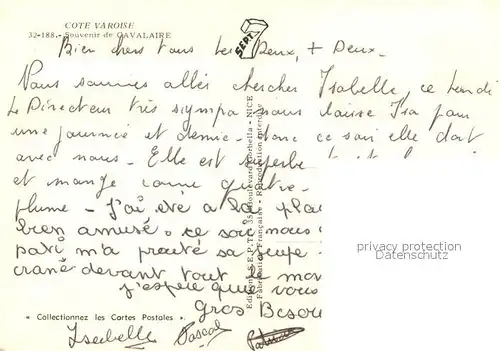 COTE VAROISE
32-188. - Souvenir de CAVALAIRE
SEPT
Bien chers tous les Deux, + Deux.
Nous sommes allés chercher Isabelle, ce Lundi
Le Directeur très sympa nous laisse Isa pour
une journée et demie. donc ce soir elle dort
avec nous. Elle est superbe
et mange comme quatre.
plume - J'ai été a la pla
bien amusé. ce soir nous
pati m'a prêté sa
crane devant tout le mo
j'espère que vous
Gros Besou
Editions S.E.P.T. 35, Boulevard Gorbella - NICE
Fabrication Française - Reproduction interdite
privacy protection
Datenschutz
« Collectionnez les Cartes Postales ».
Isabelle Pascal